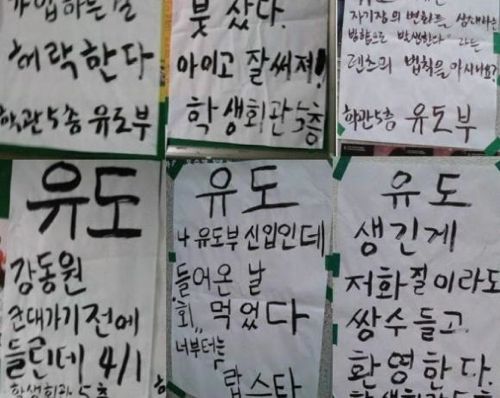 가입하는걸
허락한다
학관5층 유도부
붓 샀다.
아이고 잘써져!
학생회관 5층
자기장의 변화를 상쇄하는
방향으로 발생한다" 라는
렌츠의 법칙을 아시나요?
학관5층 유도부
유도
강동원
군대가기전에
들린데 4/1
학생회관 5층
유도
나 유도부 신입인데
들어온 날
회,, 먹었다
너부터는
랍스타
유도
생긴게
저화질이라도
쌍수들고
환영한다.
학생회관 5층